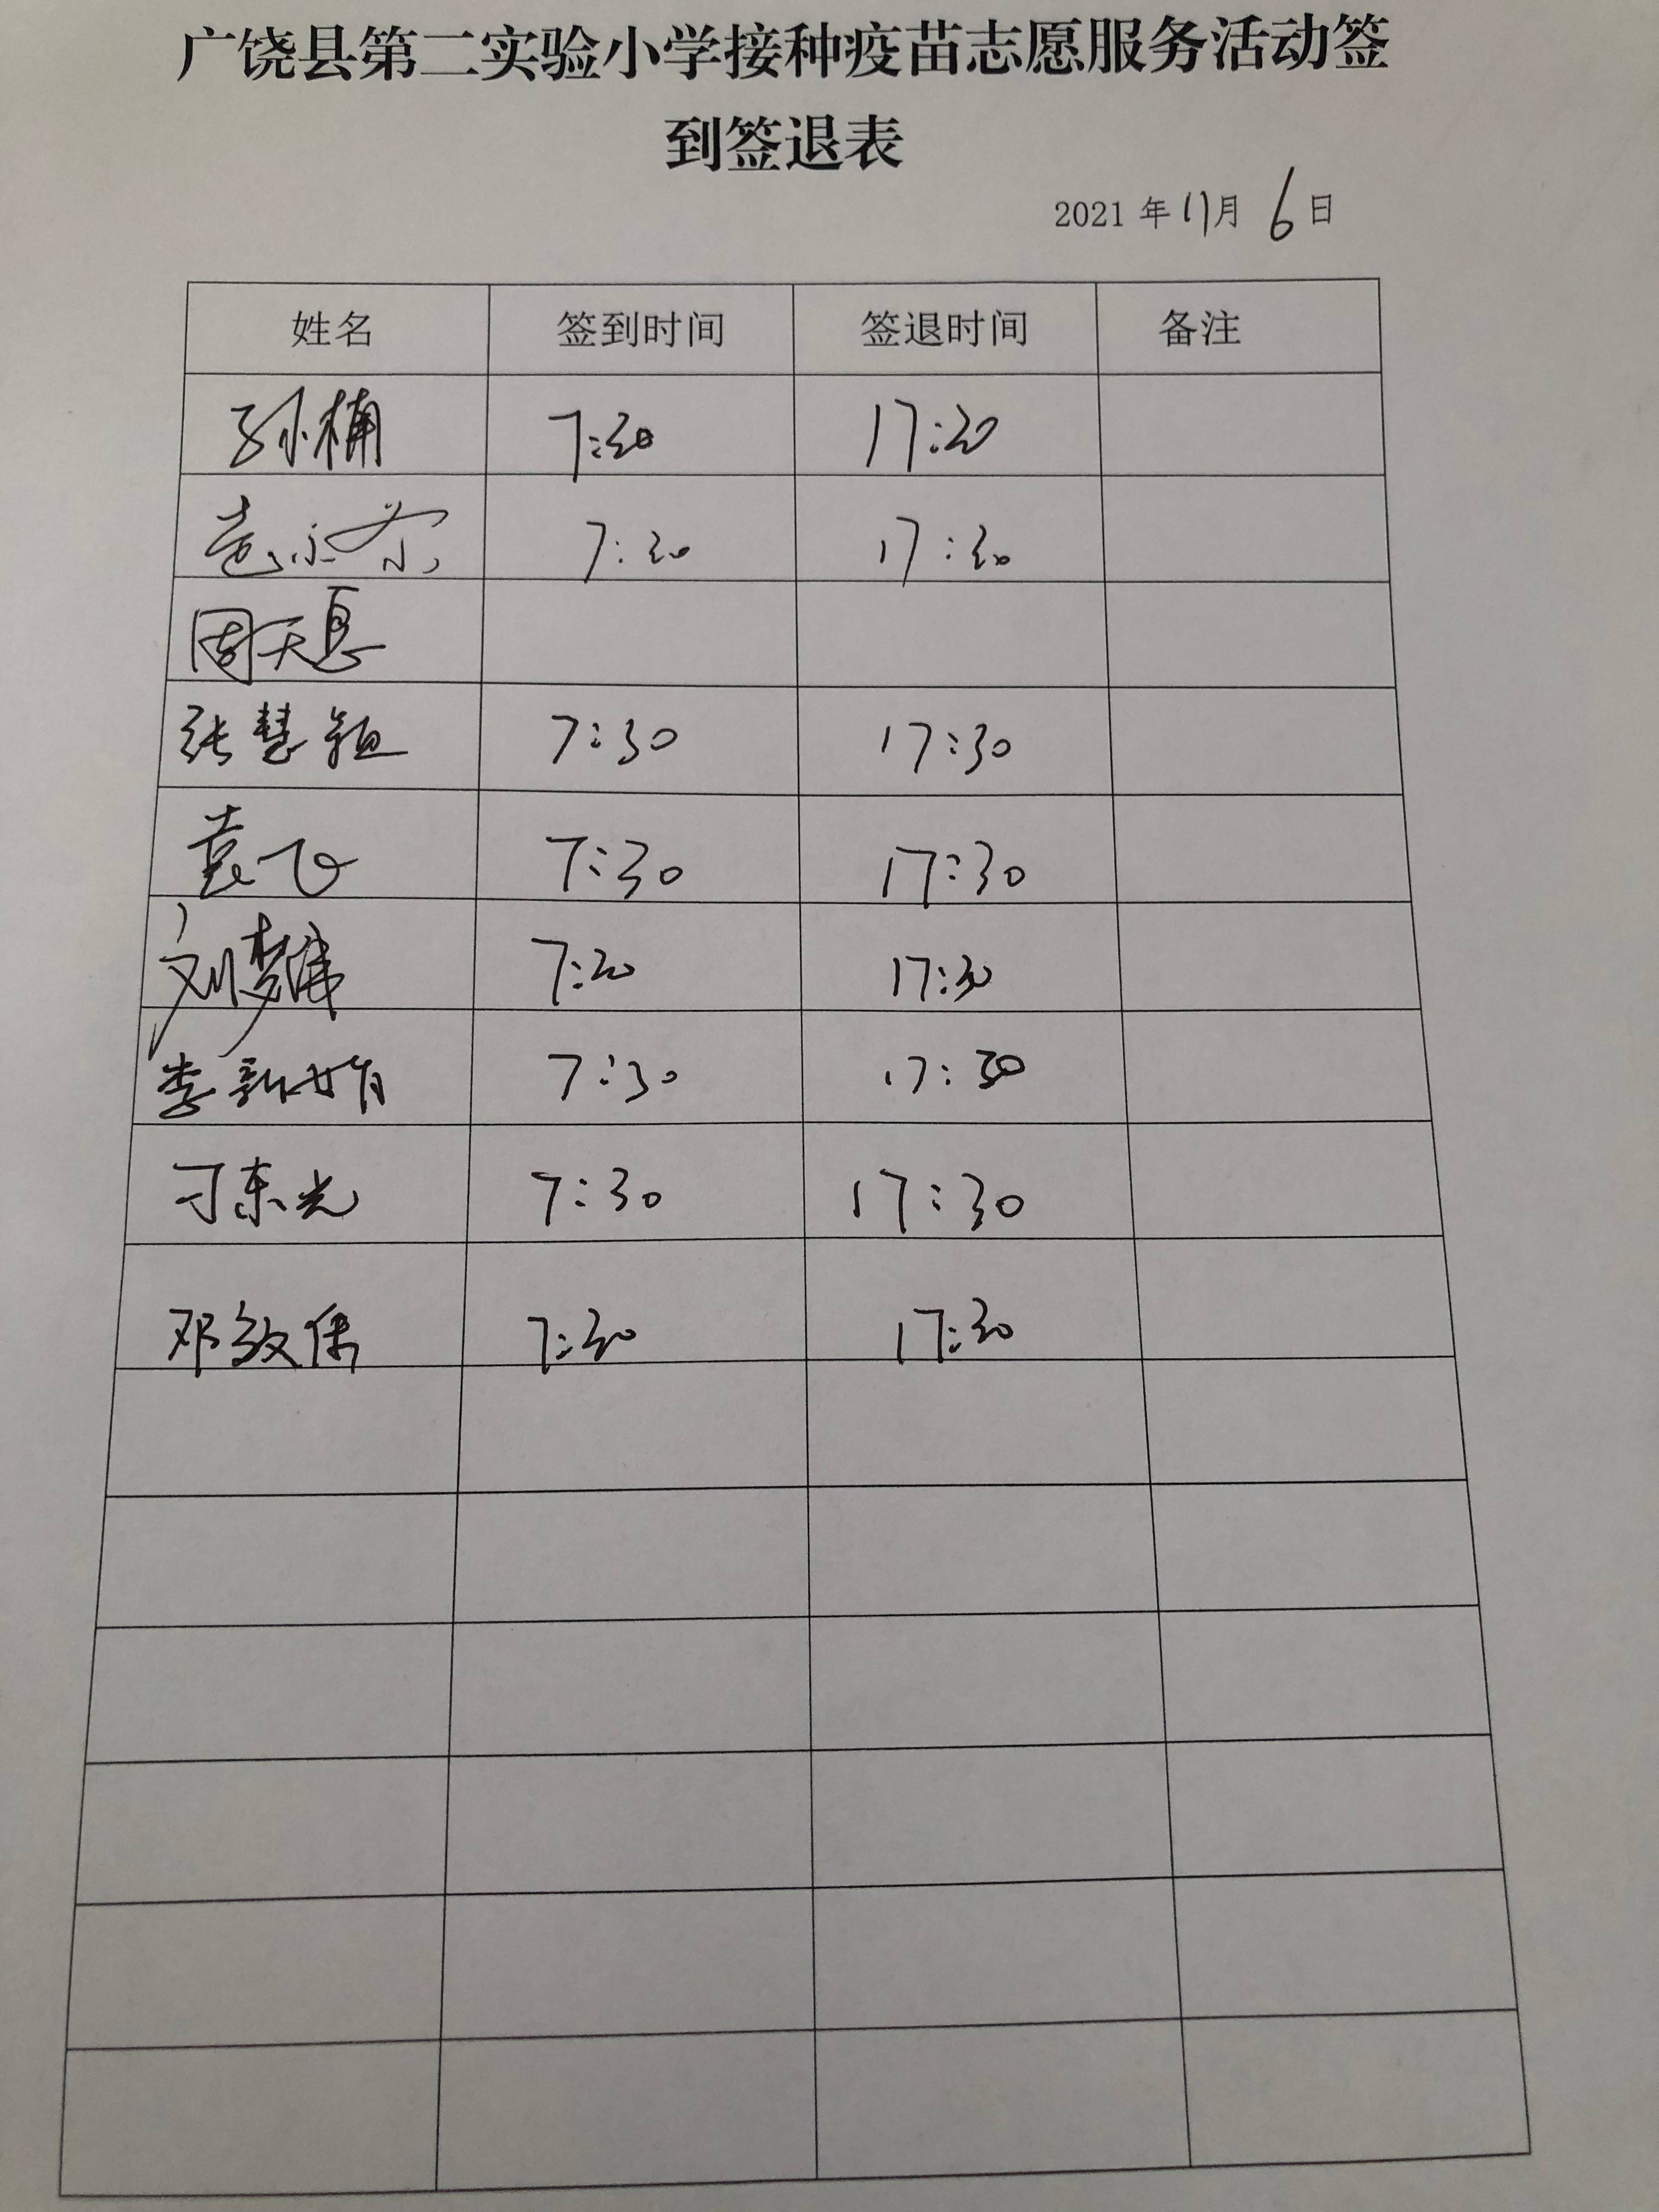 广饶县第二实验小学接种疫苗志愿服务活动签
到签退表
2021 年 11月 6日
姓名 签到时间 签退时间 备注
孙楠 7:30 17:30
7:30 17:30
周天恩
张慧颖 7:30 17:30
袁飞 7:30 17:30
刘梦伟 7:30 17:30
李新娟 7:30 17:30
刁东光 7:30 17:30
邓敏倩 7:30 17:30